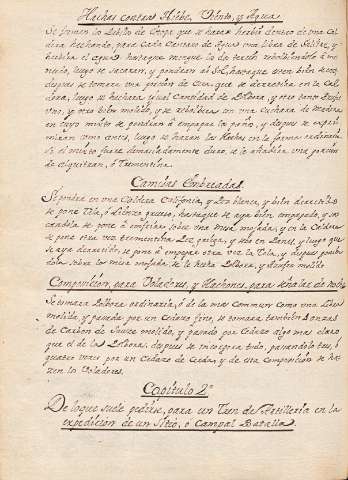 Hachas contra Niebe, Viento, y Agua
Se forman los Lienzos de Estopa que se haran hervir dentro de una Cal
dera hechando, para Cada Centaro de Agua una libra de Salitre, y
hervira el agua hasta que mengue la de tercio rebolbiendolo à me
nudo, luego se sacaran, y pondran al Sol, hasta que esten bien secos,
despues se tomara una porcion de Cera, que se derretira en la Cal
dera, luego se hechara igual Cantidad de Polvora, y otro tanto
vivo, y otro bien molido, y se rebolbera con una Cuchara de madera
en cuyo misto se pondran à empapar los paños, y despues se
luego se haran las Hachas en la forma ordinaria
si el misto fuere demasiadamente duro, se le añadira una porcion
de alquitran, ò Trementina.
Camisas Embreadas.
Se pondra en una Caldera Colifonia, y Pez blanca, y bien derretidos
se pone Tela, ò Lienzo grueso, hasta que se aya bien empapado, y en
se pone à enfriar sobre una mesa mojada, y en la Caldera
se pone otra vez trementina Pez griega, y seis en Panes, y luego que
se aya derretido, se pone à empapar otra vez la Tela, y despues ponien
dola sobre la mesa mojada, se le hecha Polvora, y Azufre molido
Composicion, para Voladores, y Hachones, para señales de noche
Se tomara Polvora ordinaria, ò de la mas Commun como una Libra
molida, y pasada por un Cedazo fino, se tomara tambien onzas
de Carbon de Sauce molido, y pasado por Cedazo algo mas claro
que el de los Polvoras, despues se incorpora todo, pasandolo tres, ò
quatro vezes por un Cedazo de Cerda, y de esta composicion se ha
zen los Voladores.
Capitulo 2º
De loque suele pedirse, para un Tren de Artilleria en la
expedicion de un Sitio, ò Campal Batalla.